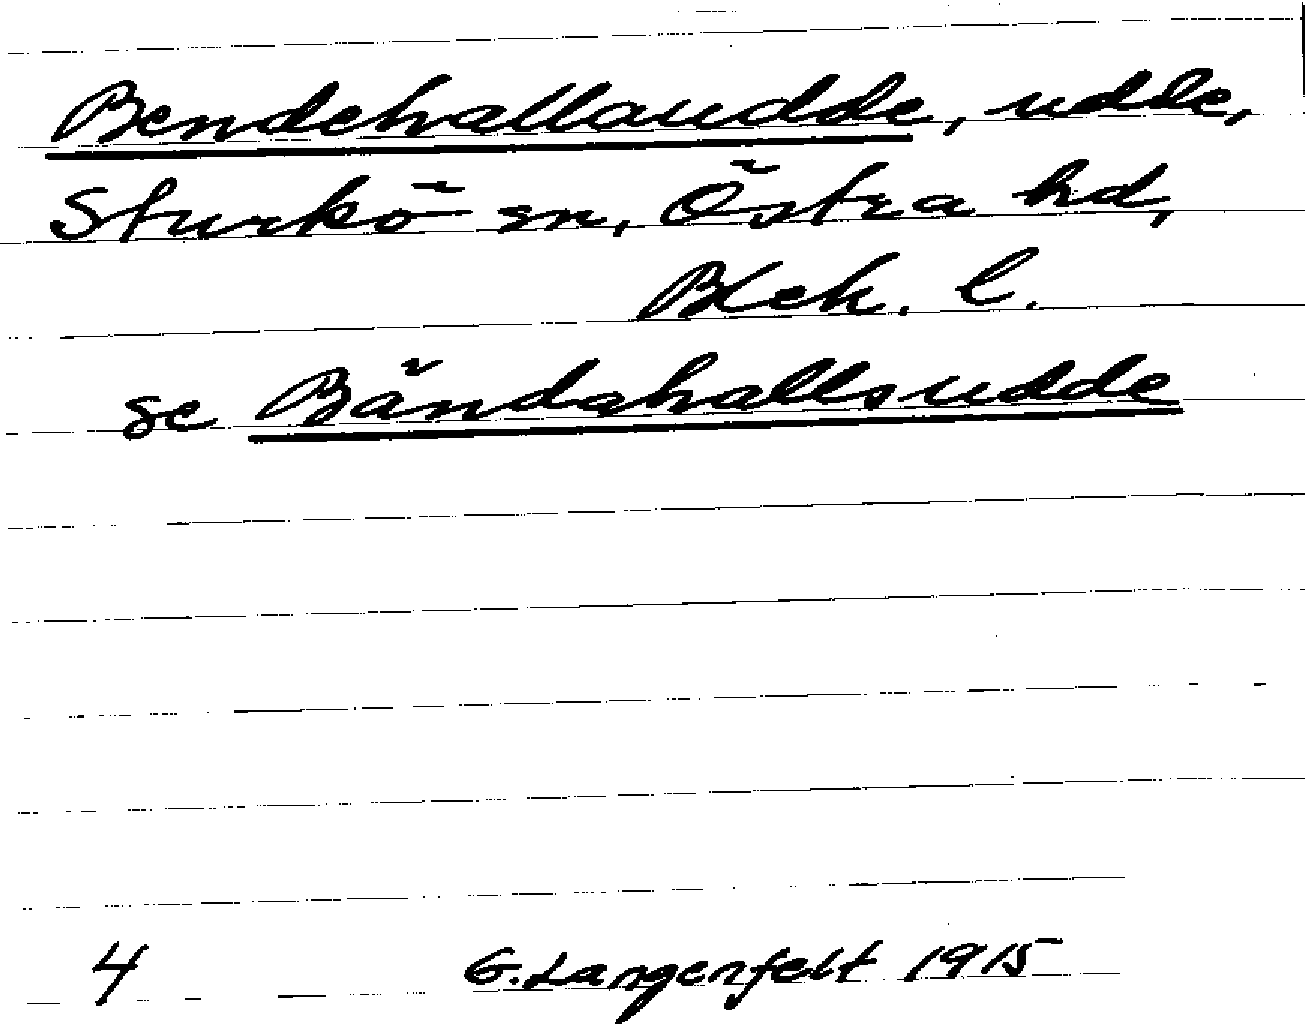 Bendehallaudde, udde,
Sturkö sn, Östra hd,
Blek. l.
se Bändahallsudde
4 G. Langenfelt 1915